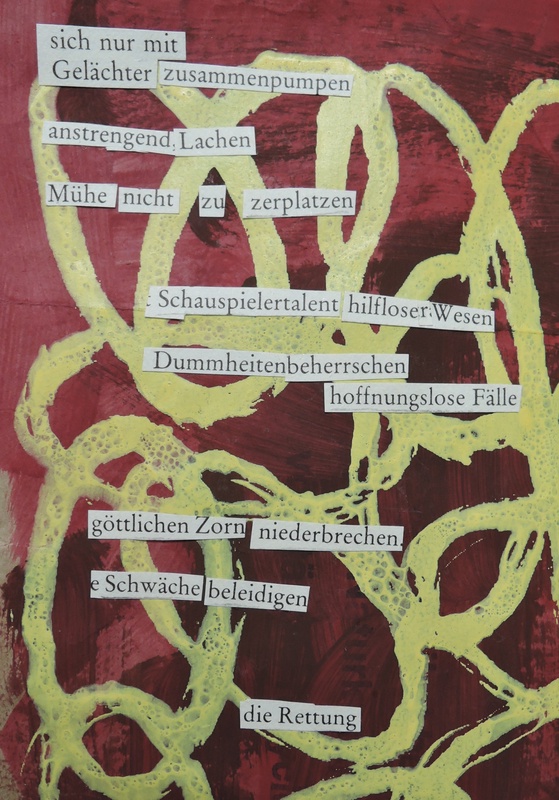 sich nur mit
Gelächter zusammenpumpen
anstrengend, Lachen
Mühe nicht zu zerplatzen
Schauspielertalent hilfloser Wesen
Dummheitenbeherrschen
hoffnungslose Fälle
göttlichen Zorn niederbrechen.
e Schwäche beleidigen
die Rettung